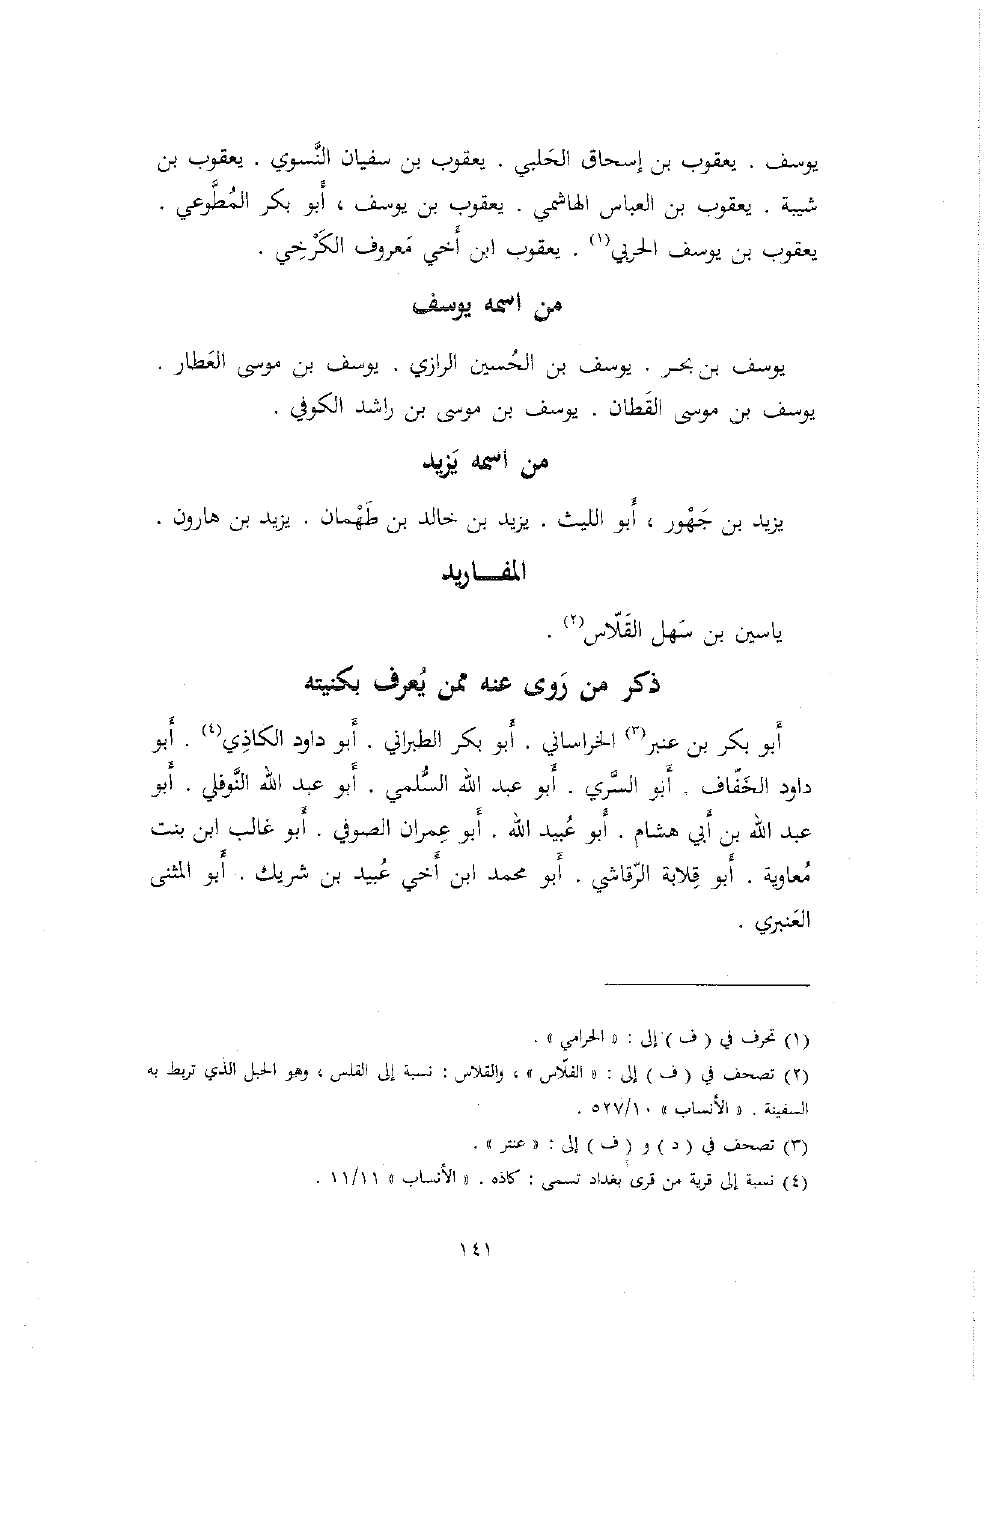 يوسف . يعقوب بن إسحاق الحَلبي . يعقوب بن سفيان النَّسوي . يعقوب بن
شيبة . يعقوب بن العباس الهاشمي . يعقوب بن يوسف ، أبو بكر المُطَّوعي .
يعقوب بن يوسف الحربي(١) . يعقوب ابن أخي مَعروف الكَرْخِي .
من اسمه يوسف
يوسف بن بحر . يوسف بن الحُسين الرازي . يوسف بن موسى العَطار .
يوسف بن موسى القَطان . يوسف بن موسى بن راشد الكوفي .
من اسمه يَزيد
يزيد بن جَهْور ، أبو الليث . يزيد بن خالد بن طَهْمان . يزيد بن هارون .
المفـــاريد
ياسين بن سَهل القَلّاس(٢) .
ذكر من رَوى عنه ممن يُعرف بكنيته
أبو بكر بن عنبر(٣) الخراساني . أبو بكر الطبراني . أبو داود الكاذِي(٤) . أبو
داود الخَفّاف . أبو السَّري . أبو عبد الله السُّلمي . أبو عبد الله النَّوفلي . أبو
عبد الله بن أبي هشام . أبو عُبيد الله . أبو عِمران الصوفي . أبو غالب ابن بنت
مُعاوية . أبو قِلابة الرّقاشي . أبو محمد ابن أخي عُبيد بن شريك . أبو المثنى
العَنبري .
(١) تحرف في ( ف ) إلى : « الحرامي » .
(٢) تصحف في ( ف ) إلى : « الفلّاس » ، والقلاس : نسبة إلى القلس ، وهو الحبل الذي تربط به
السفينة . « الأنساب » ٥٢٧/١٠ .
(٣) تصحف في ( د ) و ( ف ) إلى : « عنتر » .
(٤) نسبة إلى قرية من قرى بغداد تسمى : كاذه . « الأنساب » ١١/١١ .
١٤١